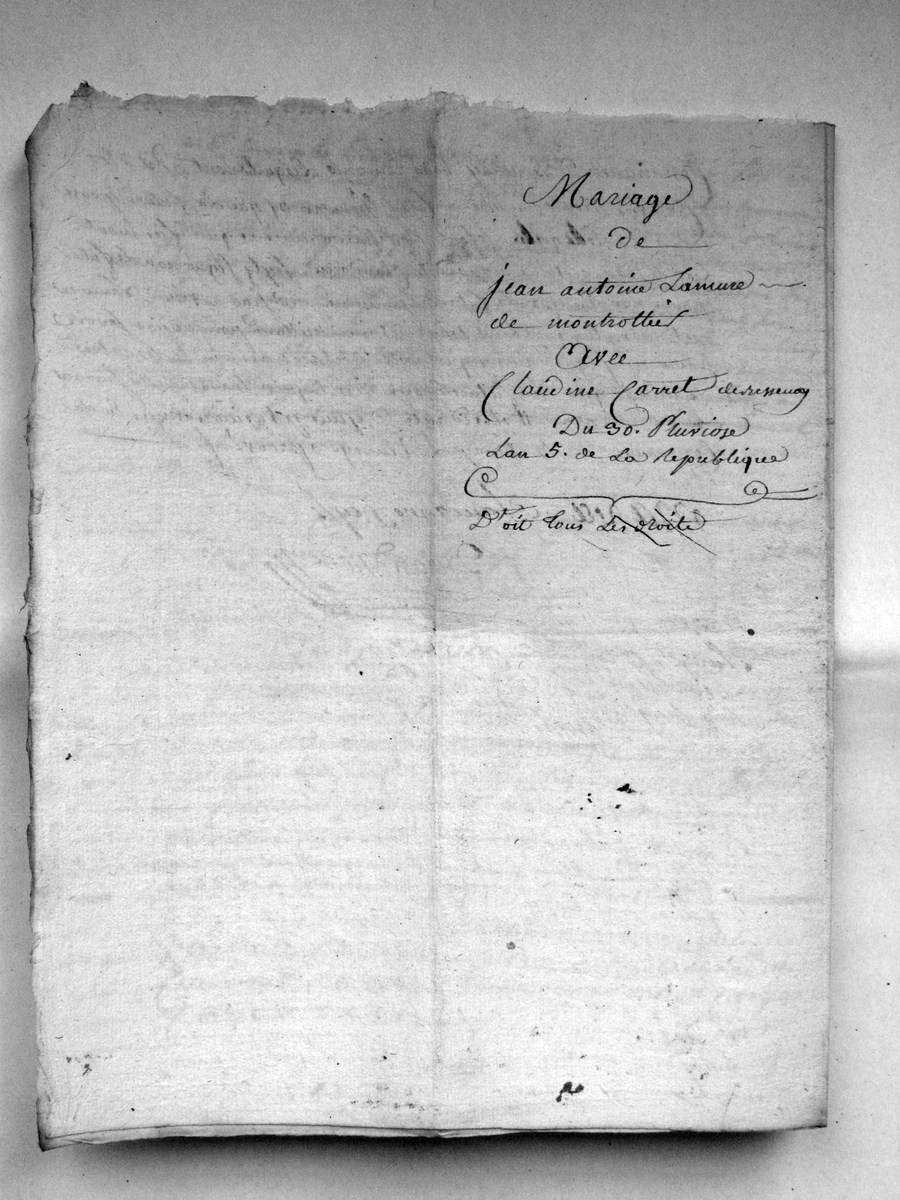 Mariage
de
jean antoine Lamure
de montrottier
Avec
Claudine Carret
Du 30. Pluviose
Lan 5. de La Republique
Doit tous Les droits